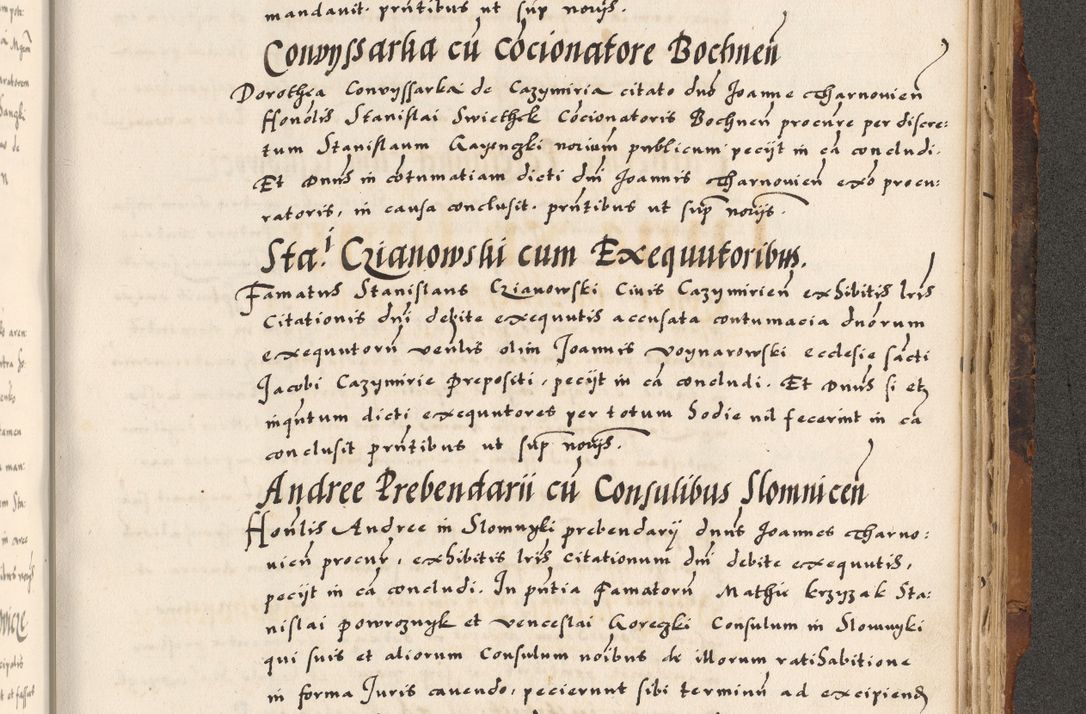 mandavit. pñtibus ut sup̃ noĩs.
Convyssarka cũ cõcionatore Bochneñ
Dorothea Convyssarka de Cazymiria citato dño Joanne Tharnovieñ
Hon̄ōlis Stanislai Swiethek Cõcionatoris Bochneñ procure per discre:
tum Stanislaum notium publicum pecijt in cã concludi.
Et Dnũs in cõtumatiam dicti dñi Joannis Tharnovieñ exõ procu:
ratoris, in causa conclusit. pñtibus ut sup̃ noĩs.
Sta.i Czianowski cum Exequutoribus.
Famatus Stanislaus Czianowski Civis Cazymirieñ exhibitis lr̃is
Citationis dñi debite exequutis accusata contumacia dnõrum
exequutorũ veñlis olim Joannis Voynarowski ecclesie sãcti
Jacobi Cazymirie Prepositi, pecijt in cã concludi. Et Dnũs si et
inqñtum dicti exequutores per totum hodie nil fecerint in cã
conclusit pñtibus ut sup̃ noĩs.
Andree Prebendarii cũ Consulibus Slomniceñ
Honlis Andree in Slomnyki prebendarij dnũs Joannes Tharno:
vieñ procur̃, exhibitis lr̃is citationum dñi debite exequutis,
pecijt in cã concludi. In pñtia Famatorũ Mathie krzyzak Sta:
nislai powroznyk et venceslai Goreczki Consulum in Slomnyki
qui suis et aliorum Consulum noĩbus de illorum ratihabitione
in forma Juris cavendo, pecierunt sibi terminũ ad excipiend